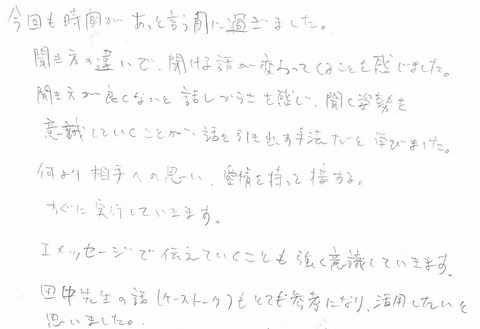 今回も時間があっと言う間に過ぎました。
聞き方の違いで、聞ける話が変わってくることを感じました。
聞き方が良くないと話しづらさを感じ、聞く姿勢を
意識していくことが、話を引き出す手法だと学びました。
何より相手への思い、愛情を持って接する。
すぐに実行していきます。
Iメッセージで伝えていくことも強く意識していきます。
田中先生の話(ケーストーク)もとても参考になり、活用したいと
思いました。